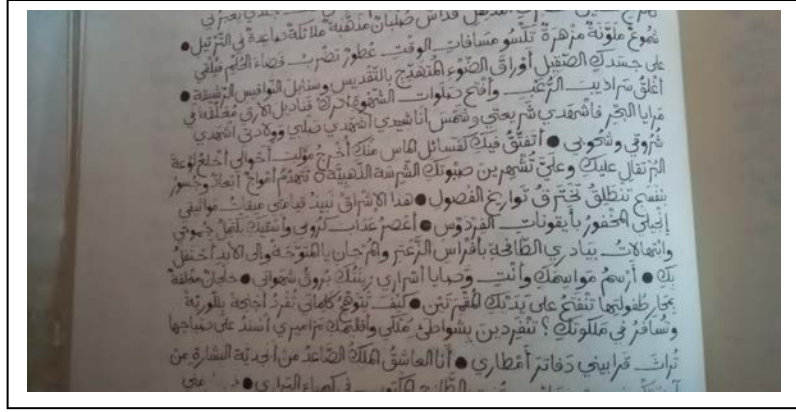 شموعٌ ملوّنةٌ مزهرةٌ تكسو مسافات الوقت عطورٌ تضرب فضاء الحُلم
على جسدكِ الصّقيل أوراقُ الضّوءِ المُتهدّجِ بالتّقديس وسنابل النّواقيس الرّشيقة ●
أُغلقُ سراديبَ الرُّعبِ وأفتحُ صلوات الشّهوةِ قناديل الأرق مُعلّقة في
مرايا البحر فاشهدي شريعتي وشمس أناشيدي اشهدي صلبي وولادتي اشهدي
شُروقي وشُحوبي ● أتفتّقُ فيكِ كفسائل الماس منكِ أخرجُ أخلعُ لوعة
البرتقال عليكِ وعليَّ تشهرين صبوتكِ الشّرسة الذّهبيّة تهدمُ أمواجٌ أبعادٌ وجسور
بنفسج تنطلقُ تخترقُ تواريخ الفصول ● هذا الإشراقُ نبيذُ قيامتي ميقات مواثيقي
إنجيلي المحفور بأيقونات الفردوس ● أعصرُ عذابَ كرومي وأسقيكِ
وابتهالات بيادري الطّافحة بأقراس الزّعتر والمرجان يا المتوّجة وإلى الأبد أحتفلُ
بكِ ● أرسمُ مواسمكِ وأنتِ وصايا أسراري زينتكِ بروقُ شهواتي ●
بمجاز طفولتها تنفتحُ على يديكِ المُقمرتين ● كيف تتوهّجُ كلماتي تفردُ أجنحة بلّوريّة
وتُسافرُ في ملكوتكِ ؟ تنفردين بشواطئ مزاميري أسندُ على
تراث قرابيني دفاتر أمطاري ● أنا العاشقُ الملكُ الصّاعدُ من أبجديّة البشارة من